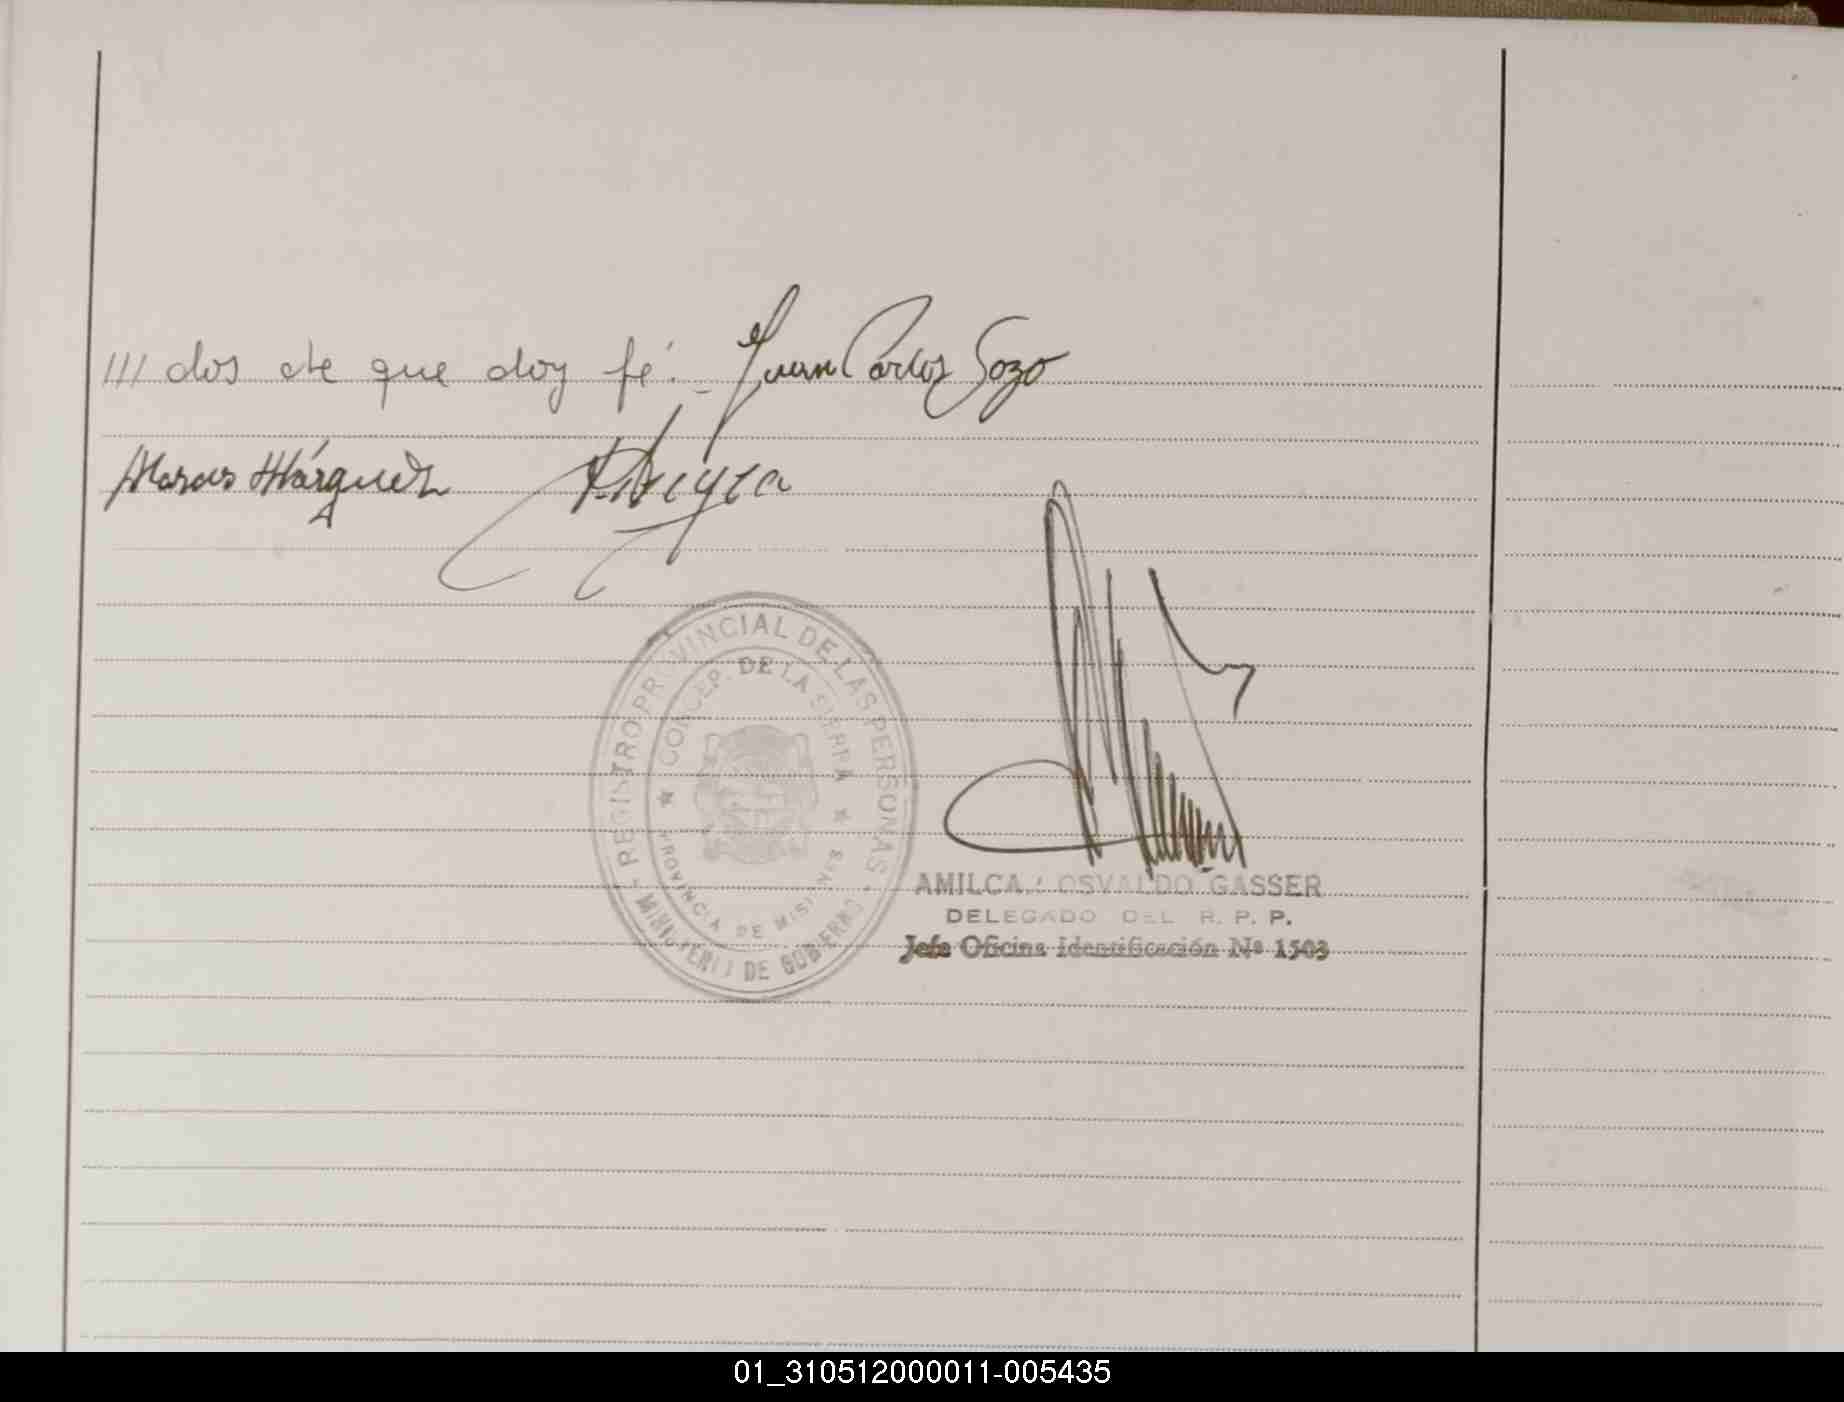 /// dos de que doy fé.- Juan Carlos Sozo
Marcos Márquez
REGISTRO PROVINCIAL DE LAS PERSONAS
- MINISTERIO DE GOBIERNO -
★ CONCEP. DE LA SIERRA ★
PROVINCIA DE MISIONES
AMILCAR OSVALDO GASSER
DELEGADO DEL R. P. P.
Jefe Oficina Identificación Nº 1503
01_310512000011-005435